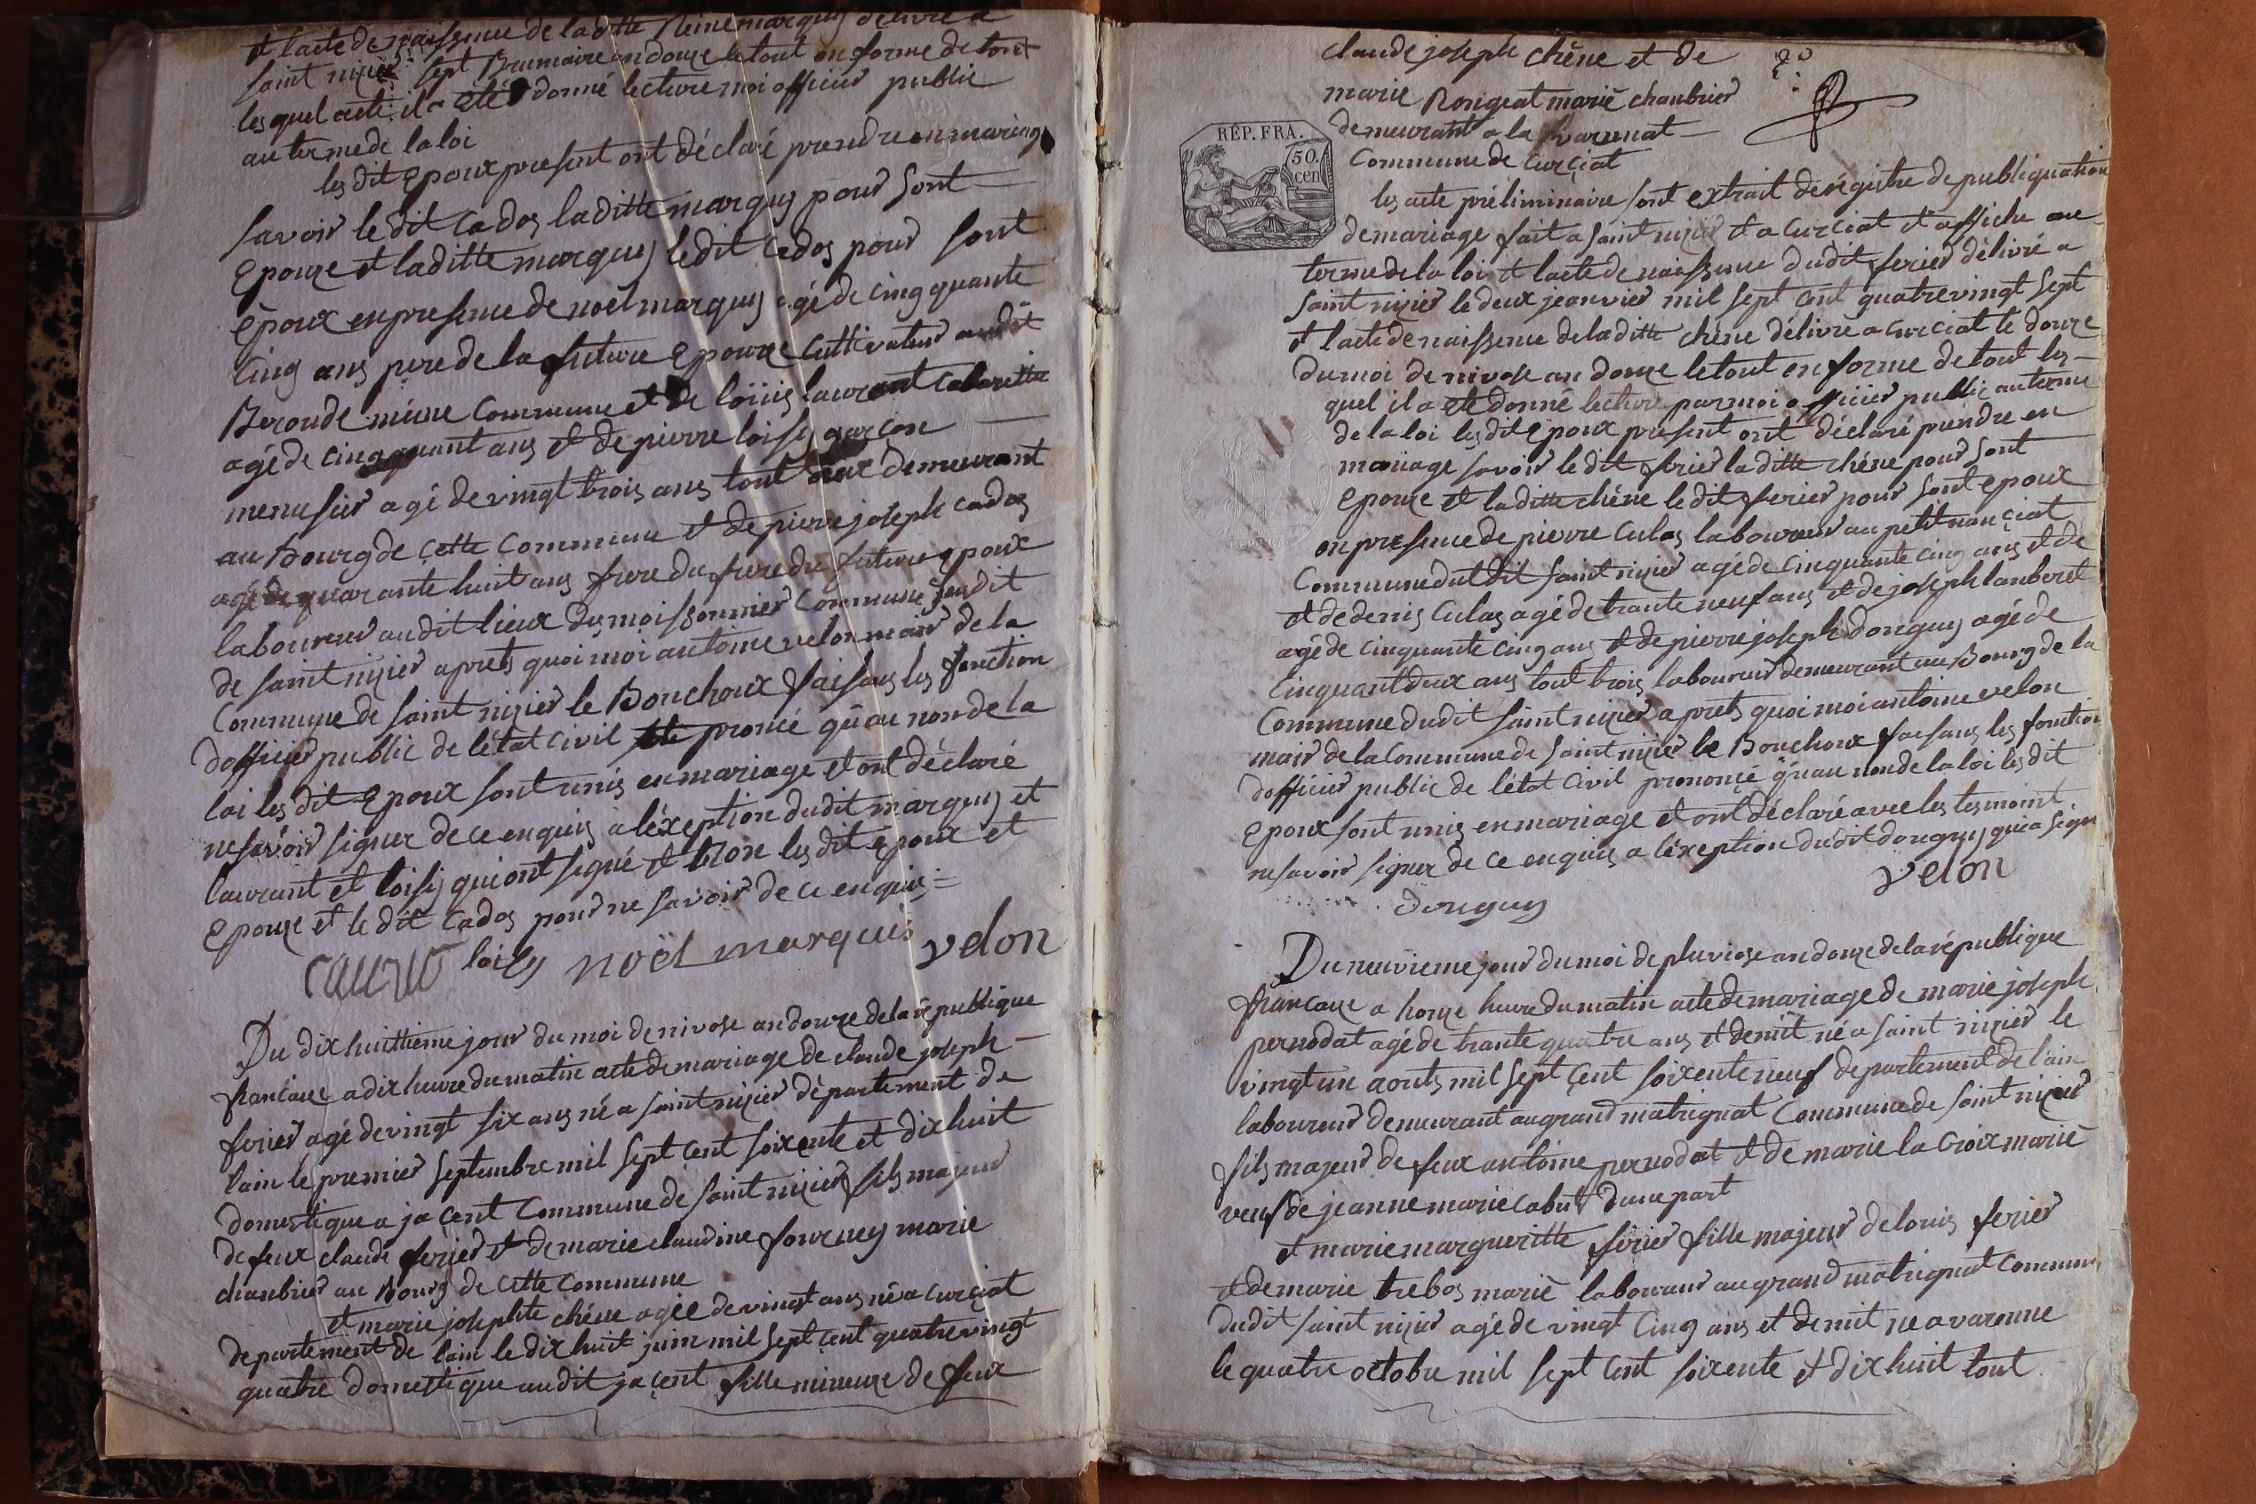 et lacte de naissence de laditte Reine marquis delivré a
saint nizier sept Brumaire an douze letout en forme de tout
lesquel acte il a été donné lecture moi officier public
au terme de la loi
les dit Epoux present ont déclaré prendre en mariage
savoir le dit cados laditte marquis pour sont
Epouze et laditte marquis ledit cados pour sont
époux en presence de noël marquis agé de cinquante
cinq ans pere de la future Epouze cultivateur audit
Beronde même commune et de loüis laurant cabarettie
agé de cinquant ans et de pierre loisy garçon
menusier agé de vingt trois ans tout deux demeurant
au Bourg de cette commune et de pierre joseph cados
agé de quarante huit ans frere du frere du future Epoux
laboureur audit lieux du moissonnier commune dudit
de saint nizier aprets quoi moi antoine velon mair de la
commune de saint nizier le Bouchoux faisans les fonction
dofficier public de létat civil pronçé quau non de la
loi les dit Epoux sont unis en mariage et ont déclaré
ne savoir signer de ce enquis a léxeption dudit marquis et
laurant et loisy qui ont signé et non les dit époux et
Epouze et le dit cados pour ne savoir de ce enquis =
laurant loisy noël marquis velon
Du dix huittieme jour du moi de nivose an douze de la république
francaise a dix heure du matin acte de mariage de claude joseph
ferier agé de vingt six ans né a saint nizier département de
lain le premier septembre mil sept cent soixente et dix huit
domestique a jacent commune de saint nizier fils majeur
de feux claude ferier et de marie claudine fourney marie
chanbrier au Bourg de cette commune
et marie josephte chéne agée de vingt ans né a curciat
departement de lain le dix huit juin mil sept cent quatrevingt
quatre domestique audit jacent fille mineure de feux
claude joseph chêne et de
marie Rongeat marié chanbrier
demeurant a la varennat
commune de curciat
RÉP. FRA.
50. cen
les acte préliminaire sont extrait de régistre de publiquation
de mariage fait a saint nizier et a curciat et affiche au
terme de la loi et lacte de naissence dudit ferier délivré a
saint nizier le deux jeanvier mil sept cent quatrevingt sept
et lacte de naissence de laditte chéne délivré a curciat le douze
du moi de nivose an douze letout en forme de tout les
quel il a eté donné lecture par moi officier public au terme
de la loi les dit Epoux present ont déclaré prendre en
mariage savoir le dit ferier laditte chéne pour sont
epouze et laditte chéne ledit ferier pour sont epoux
en presence de pierre culas laboureur au petit nonciat
commune dudit saint nizier agé de cinquante cinq ans et de
et de denis culas agé de trante neuf ans et de joseph lanberet
agé de cinquante cinq ans et de pierre joseph donguy agé de
cinquant deux ans tout trois laboureur demeurant au Bourg de la
commune dudit saint nizier aprets quoi moi antoine velon
mair de la commune de saint nizier le Bouchoux faisans les fonction
dofficier public de létat civil prononcé quau non de la loi les dit
epoux sont unis en mariage et ont déclaré avec les tesmoint
ne savoir signer de ce enquis a léxeption dudit donguy qui a signé
velon
donguy
Du neuvieme jour du moi de pluviose an douze de la république
francaise a honze heure du matin acte de mariage de marie joseph
pernodat agé de trante quatre ans et demit né a saint nizier le
vingt un aouts mil sept cent soixente neuf departement de l'ain
laboureur demeurant au grand matrignat commune de saint nizier
fils majeur de feux antoine pernodat et de marie la croix marié
veuf de jeanne marie cabut dune part
et marie margueritte ferier fille majeur de louis ferier
et de marie trebos marié laboureur au grand matrignat commune
dudit saint nizier agé de vingt cinq ans et demit ne a varenne
le quatre octobre mil sept cent soixente et dix huit tout